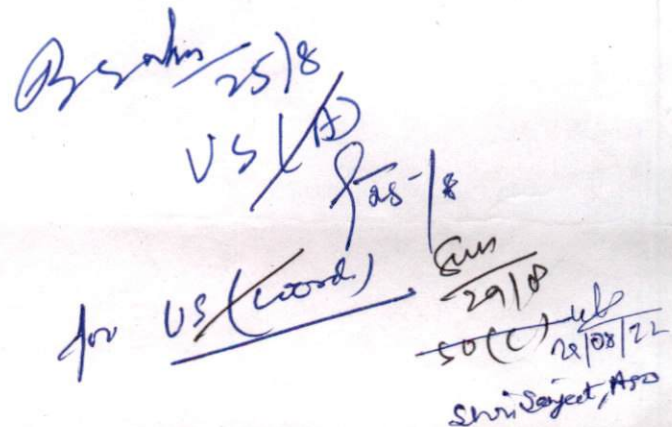 25/8
US (A)
25/8
for US (Coord.)
29/8
SO (C)
29/08/22
Shri Sanjeet, ASO